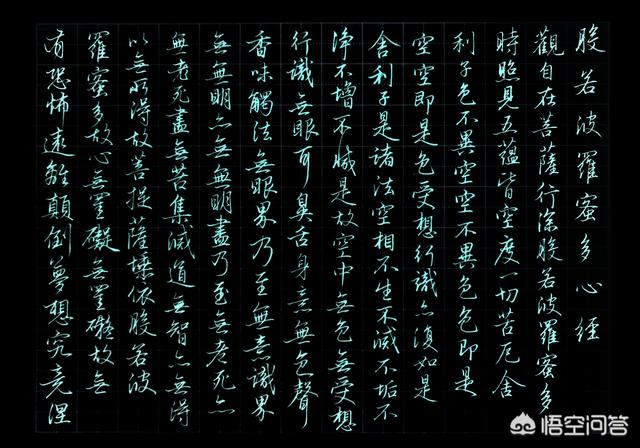 般若波羅蜜多心經
觀自在菩薩行深般若波羅蜜多
時照見五蘊皆空度一切苦厄舍
利子色不異空空不異色色即是
空空即是色受想行識亦復如是
舍利子是諸法空相不生不滅不垢不
淨不增不減是故空中無色無受想
行識無眼耳鼻舌身意無色聲
香味觸法無眼界乃至無意識界
無無明亦無無明盡乃至無老死亦
無老死盡無苦集滅道無智亦無得
以無所得故菩提薩埵依般若波
羅蜜多故心無罣礙無罣礙故無
有恐怖遠離顛倒夢想究竟涅
悟空问答